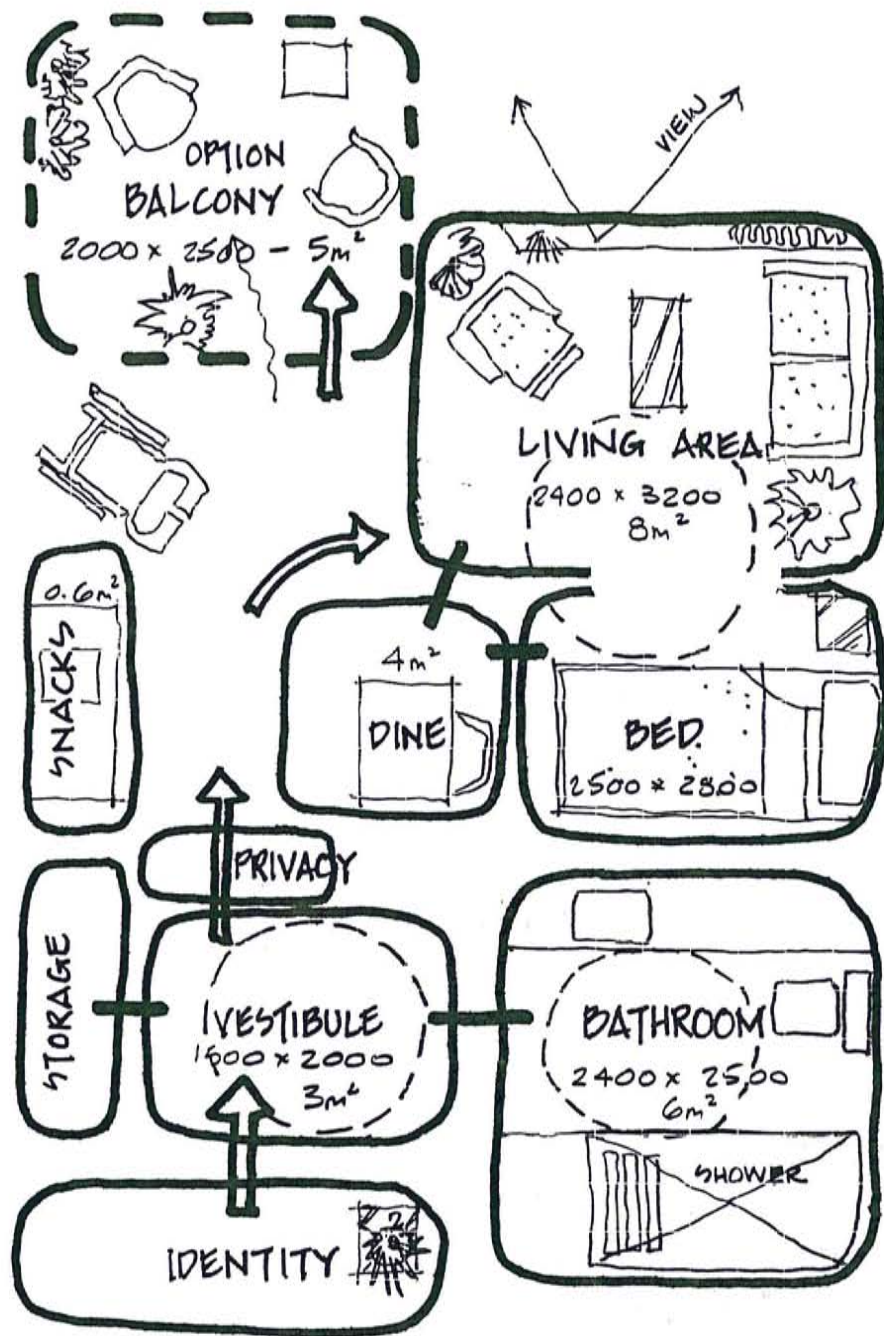 OPTION
BALCONY
2000 × 2500 - 5m²
VIEW
LIVING AREA
2400 × 3200
8m²
0.6m²
SNACKS
4m²
DINE
BED
2500 × 2800
PRIVACY
STORAGE
VESTIBULE
1500 × 2000
3m²
BATHROOM
2400 × 2500
6m²
SHOWER
IDENTITY